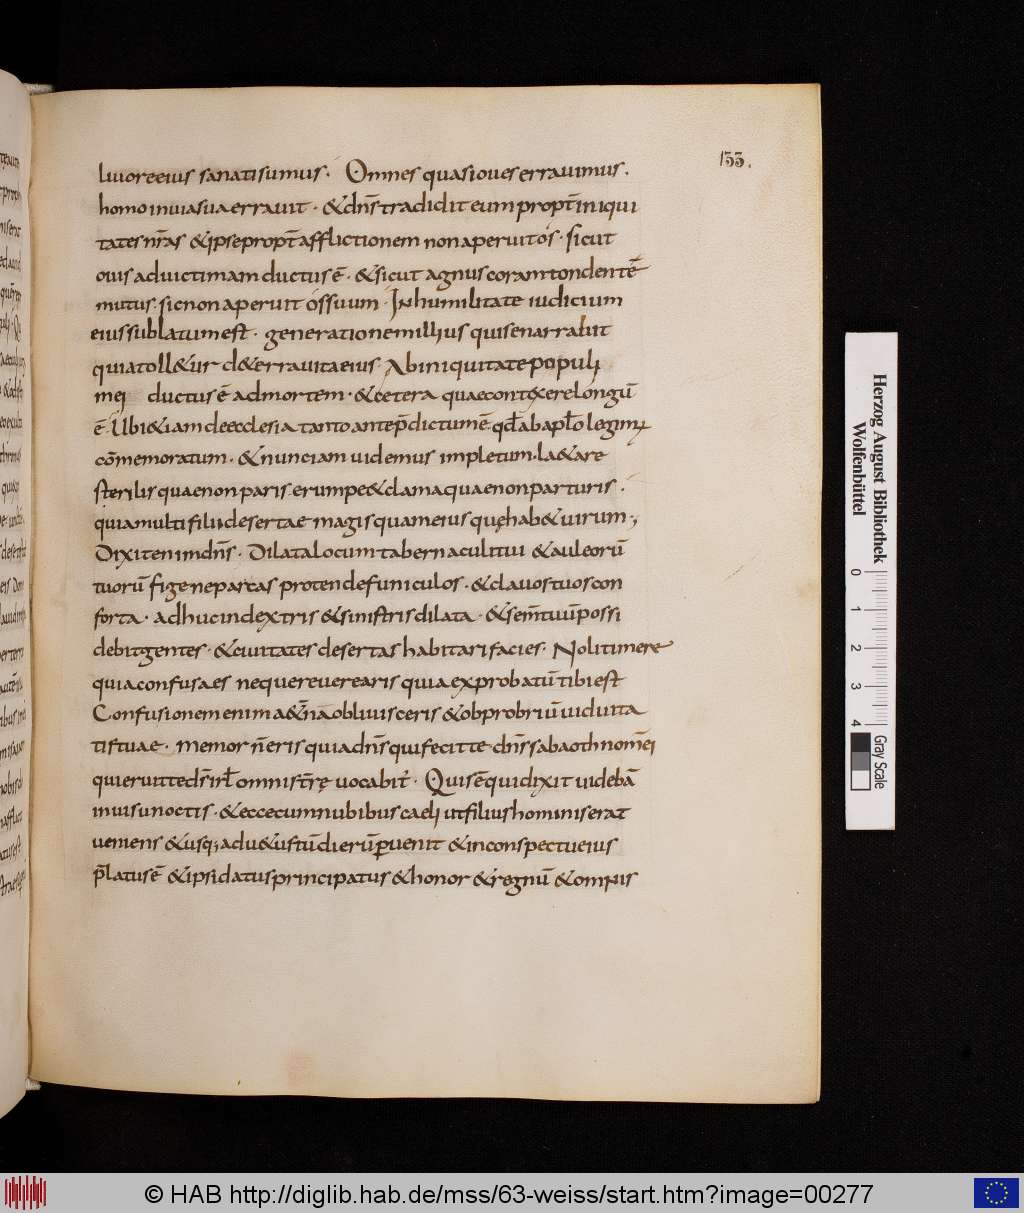 133.
liuore eius sanati sumus. Omnes quasi oues errauimus.
homo in uia sua errauit. & dn̄s tradidit eum propt̄ iniqui
tates nr̄as & ipse propt̄ afflictionem non aperuit os. sicut
ouis ad uictimam ductus ē. & sicut agnus coram tondente
mutus. sic non aperuit os suum. In humilitate iudicium
eius sublatum est. generatione millius quis enarrabit
quia toll&ur d& erra uita eius. Ab iniquitate populi
mei ductus ē ad mortem. & cetera quae contexere longū
ē. Ubi &iam de ecclesia tanto ante p̄dictum ē. qd̄ ab apl̄o legim;
cōmemoratum. & nunc iam uidemus impletum. la&are
sterilis quae non paris. erumpe & clama quae non parturis.
quia multi filii desertae magis quam eius quę hab& uirum;
Dixit enim dn̄s. Dilata locum tabernaculi tui & auleorū
tuorū fige ne parcas protende funiculos. & clauos tuos con
forta. adhuc in dextris & sinistris dilata. & sem̄ tuū possi
debit gentes. & ciuitates desertas habitari facies. Noli timere
quia confusa es neque reuerearis quia exprobatū tibi est
Confusionem enim a&n̄a obliuisceris & obprobriū uiduita
tis tuae. memor n̄ eris quia dn̄s qui fecit te dn̄s sabaoth nom̄ ei
qui eruit te ds̄ irl̄ omnis t̄rę uocabit̄. Quis ē qui dixit uidebā
in uisu noctis. & ecce cum nubibus caeli ut filius hominis erat
ueniens & usq; ad u&ustū dierū puenit & in conspectu eius
p̄latus ē & ipsi datus principatus & honor & regnū & omnis
Herzog August Bibliothek
Wolfenbüttel
0 1 2 3 4
Gray Scale
© HAB http://diglib.hab.de/mss/63-weiss/start.htm?image=00277